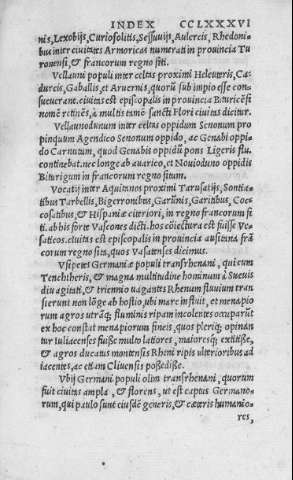 INDEX CCLXXXVI
nis, Lexobijs, Curiosolitis, Sessuuijs, Aulercis, Rhedoni-
bus inter ciuitates Armoricas numerati in prouincia Tu
ronensi, & francorum regno siti.
Vellauni populi inter celtas proximi Heleuteris, Ca
durcis, Gaballis, et Aruernis, quorũ sub impio esse con
sueuerant. ciuitas est episcopalis in prouincia Bituricẽsi
nomẽ retinẽs, à multis etiã sancti Flori ciuitas dicitur.
Vellaunodunum inter celtas oppidum Senonum pro
pinquum Agendico Senonum oppido, ac Genabi oppi-
do Carnutum, quod Genabis oppidũ pons Ligeris flu.
continebat. nec longe ab auarico, et Nouioduno oppidis
Biturigum in francorum regno situm.
Vocatij inter Aquitanos proximi Tarusatijs, Sontia
tibus Tarbellis, Bigerronibus, Garũnis, Garitibus, Coc-
cosatibus, & Hispaniæ citeriori, in regno francorum si
ti. ab his forte Vascones dicti. hos cõiectura est fuisse Va-
saticos. ciuitas est episcopalis in prouincia ausiena frã
corum regno sita, quos Vasatenses dicimus.
Vsipetes Germaniæ populi transrhenani, qui cum
Tenchtheris, & magna multitudine hominum à Sueuis
diu agitati, & triennio uagantes Rhenum fluuium tran
sierunt non lõge ab hostio, ubi mare influit, et menapio
rum agros utrãq; fluminis ripam incolentes occuparũt
ex hoc constat menapiorum fineis, quos pleriq; opinan
tur iuliacenses fuisse multo latiores, maioresq; extitisse,
& agros ducatus montensis Rheni ripis ulterioribus ad
iacentes, ac etiam Cliuensis possedisse.
Vbij Germani populi olim transrhenani, quorum
fuit ciuitas ampla, & florens, ut est captus Germano-
rum, qui paulo sunt eiusdẽ generis, & cæteris humanio-
res,